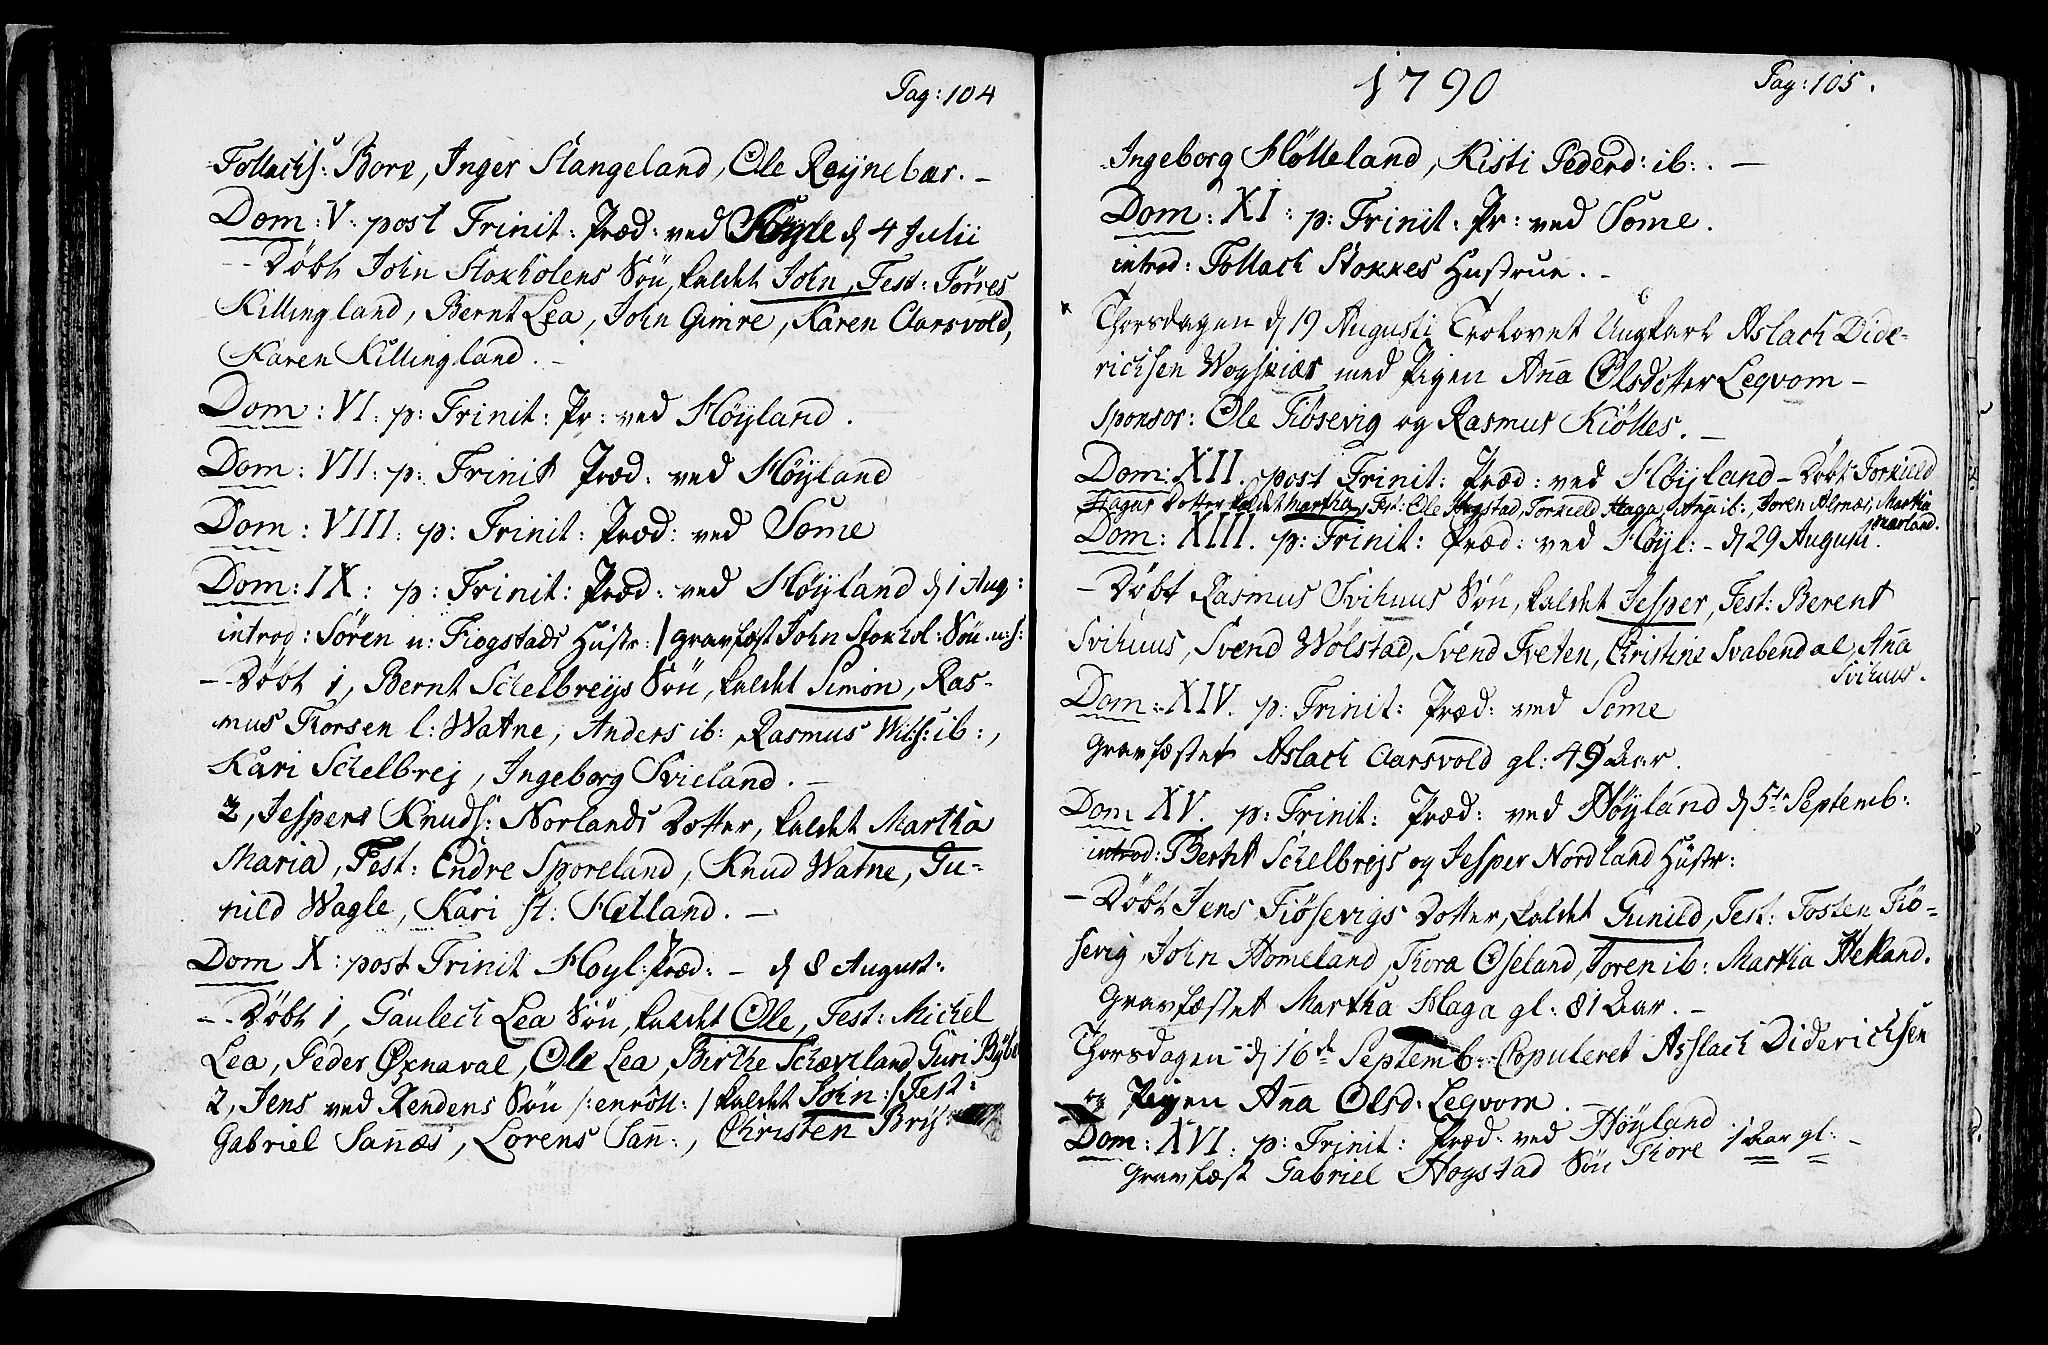 Pag: 104
Tollachs: Bore, Inger Stangeland, Ole Reynebær. -
Dom: V. post Trinit: Præd: ved Høyle d 4 Julii
- Döbt John Stokholens Sön, kaldet John, Test: Törres
Killingland, Bernt Lea, John Gimre, Karen Aarsvold,
Karen Killingland. -
Dom: VI. p: Trinit: Pr: ved Höyland.
Dom: VII: p: Trinit Præd: ved Höyland
Dom: VIII. p: Trinit: Præd: ved Some
Dom: IX: p: Trinit: Præd: ved Höyland d 1 Aug:
introd: Sören n: Fiogstads Hustr: / gravfæst John Stokhol: Sön n: s:
- Döbt 1, Bernt Schelbreijs Sön, kaldet Simon, Ras-
mus Thorsen l: Watne, Anders ib:, Rasmus Wils: ib:,
Kari Schelbrej, Ingeborg Svieland. -
2, Jespers Knuds: Norlands Dotter, kaldet Martha
Maria, Test: Endre Sporeland, Knud Watne, Gu-
nild Wagle, Kari st: Hetland. -
Dom X: post Trinit Höyl: Præd: - d 8 August:
- Döbt 1, Gaulech Lea Sön, kaldet Ole, Test: Michel
Lea, Peder Øxnaval, Ole Lea, Birthe Schæveland, Guri Bÿbe
2, Jens ved Rendens Sön /: enröll: / kaldet John: / Test:
Gabriel Sañæs, Lorens Sañ:, Christen Brÿ:
1790
Pag: 105.
Ingeborg Hötteland, Kisti Pederd: ib: . -
Dom: XI: p: Trinit: Pr: ved Some.
introd: Tollach Stokkes Hustrue. -
Thorsdagen d 19 Augusti Trolovet Ungkarl Aslach Dide-
richsen Wogskiær med Pigen Aña Olsdotter Leqvom -
sponsor: Ole Tiösevig og Rasmus Kiölles. -
Dom: XII. post Trinit: Præd: ved Höyland - Döbt Torkield
Hagas Dotter kaldet Martha, Test: Ole Hogstad, Torkield Haga, Aña ib:, Soren Almæs, Martha
Dom: XIII. p: Trinit: Præd: ved Höyl: - d 29 Augusti.
- Döbt Rasmus Svihuus Sön, kaldet Jesper, Test: Berent
Svihuus, Svend Wölstad, Svend Tveten, Christine Svabendal, Aña
Svihuus.
Dom: XIV. p: Trinit: Præd: ved Some
Gravfæstet Aslach Aarsvold gl: 49 Aar.
Dom XV. p: Trinit: Præd: ved Höyland d 5te Septemb:
introd: Bernt Schelbrejs og Jesper Nordland Hustr:
- Döbt Jens Tiösevigs Dotter, kaldet Gunild, Test: Tosten Tiö-
sevig, John Homeland, Thora Oseland, Toren ib: Martha Helland.
Gravfæstet Martha Haga gl: 81 Aar. -
Thorsdagen d 16d Septemb: Copuleret Asslach Diderichsen
og Pigen Aña Olsd: Leqvom. -
Dom: XVI. p: Trinit: Præd: ved Höyland
Gravfæst Gabriel Hogstad Sön Thore 1 Aar gl: -